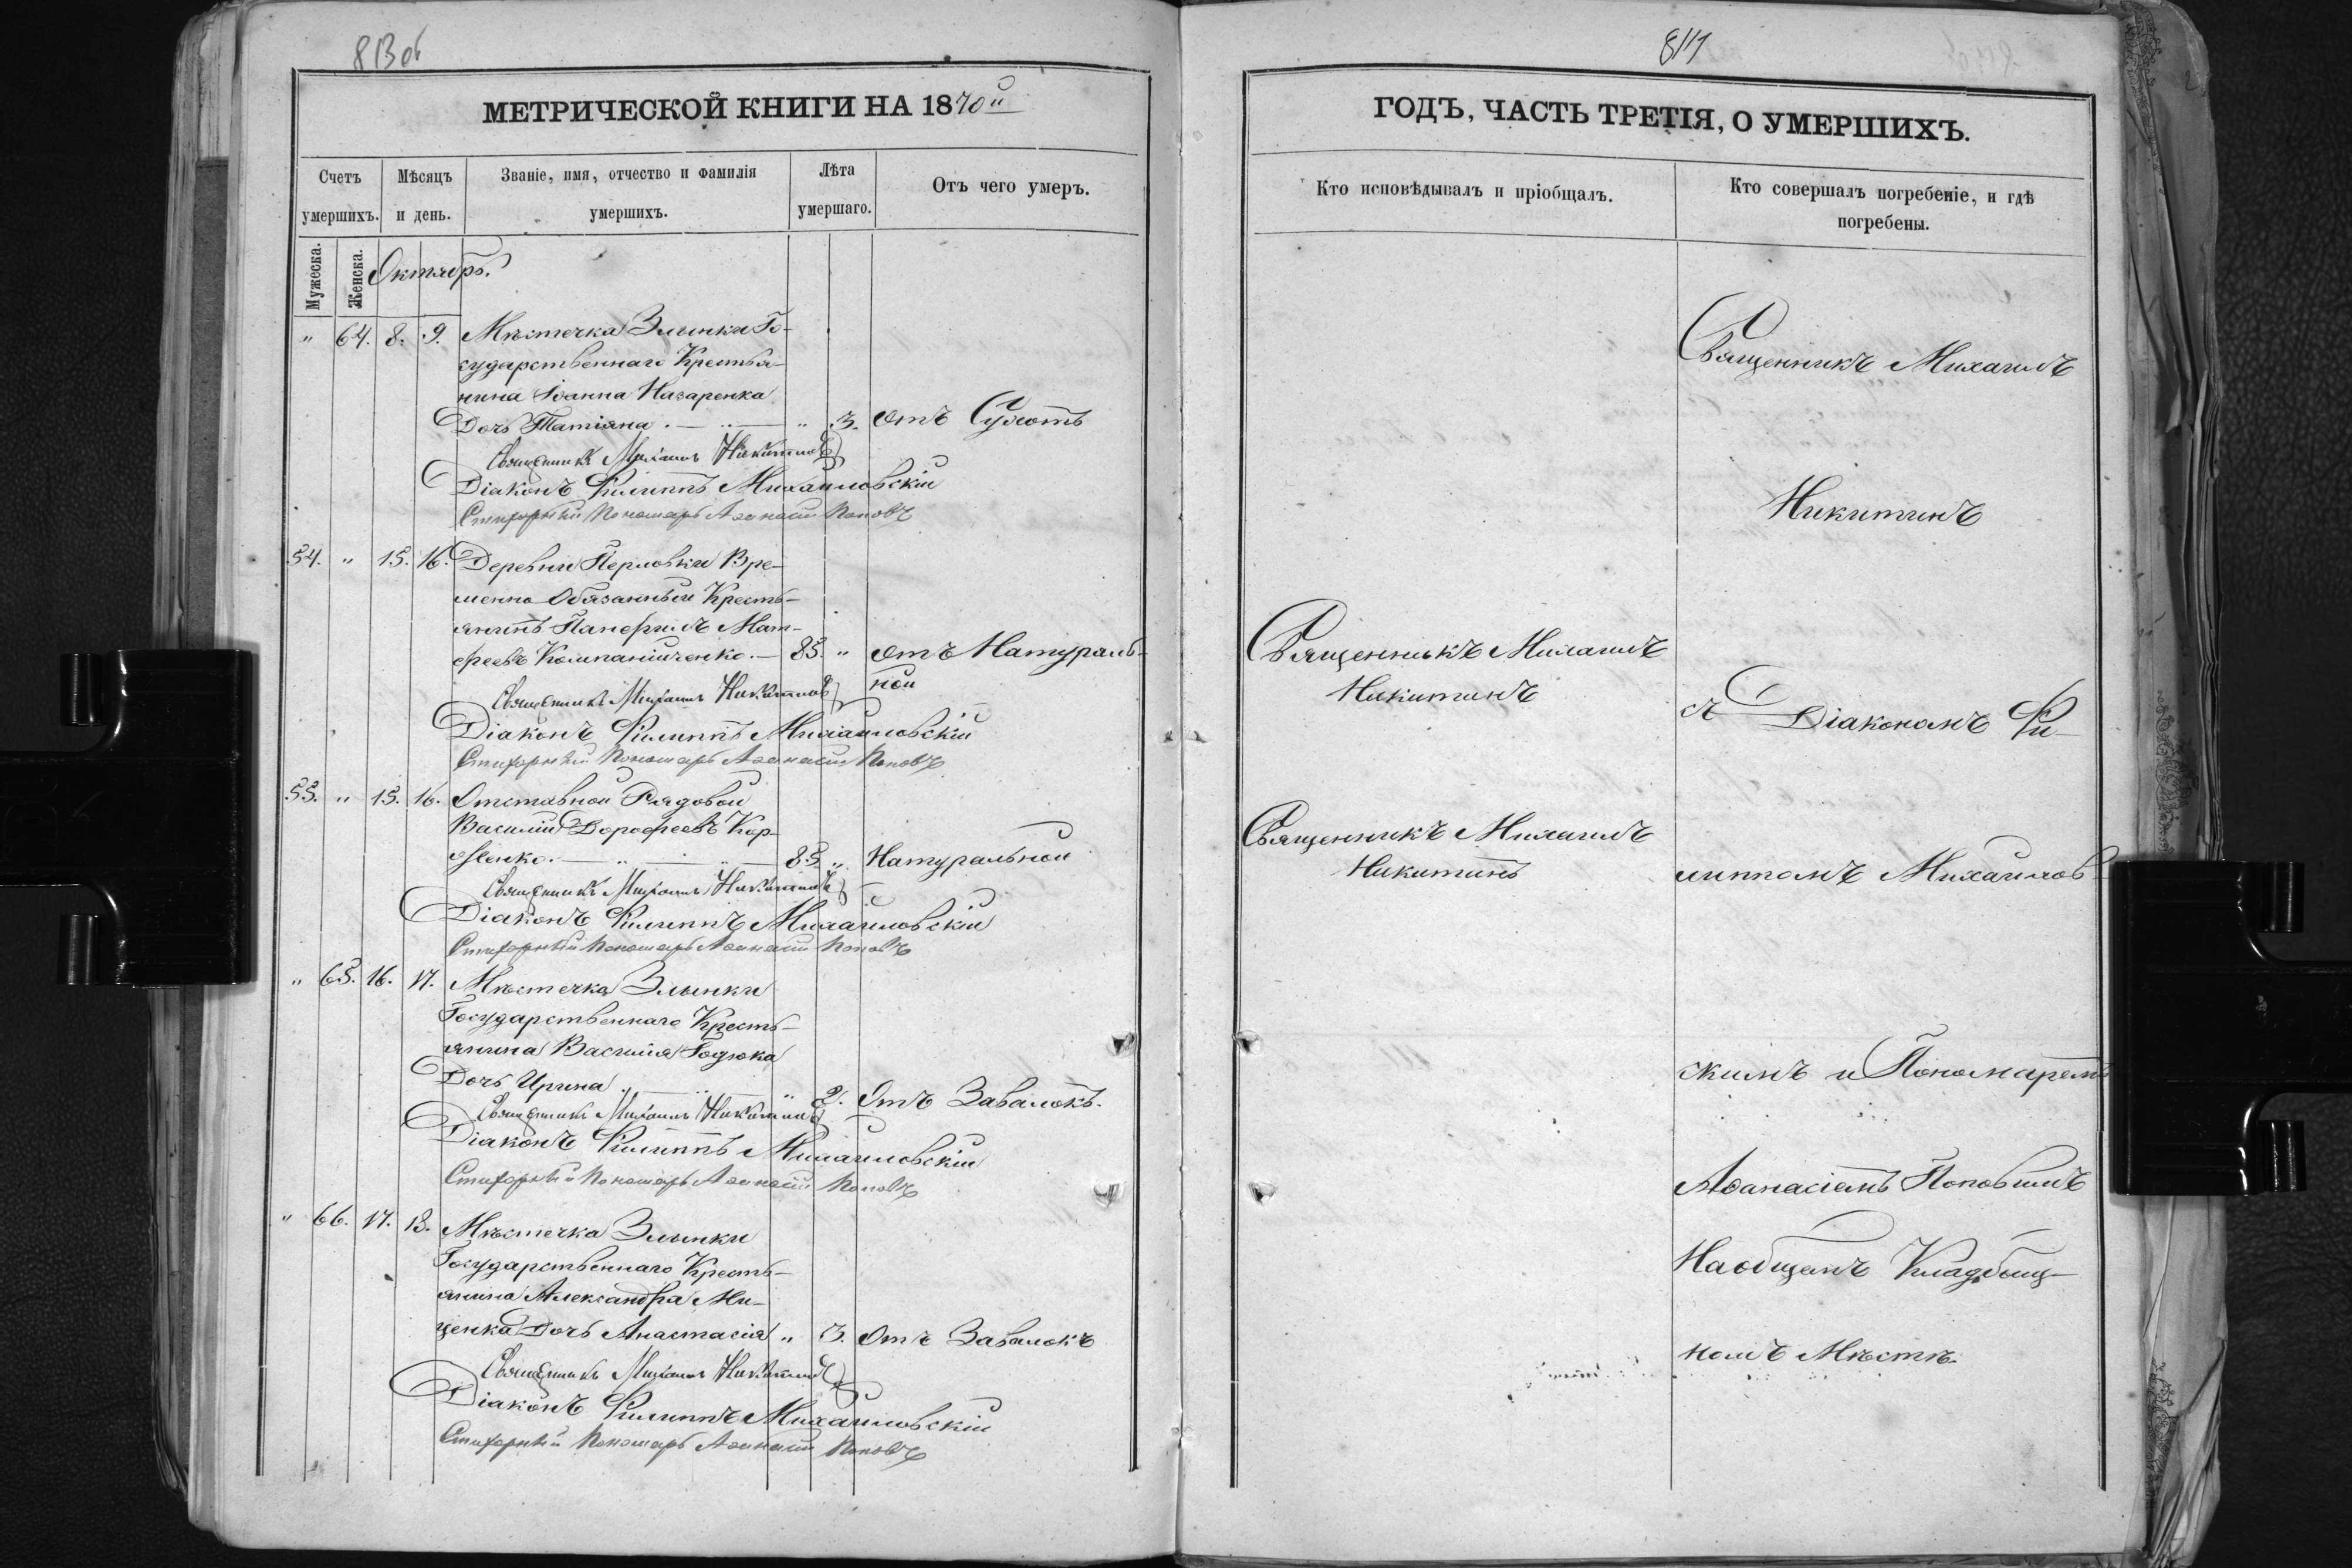 813 об
МЕТРИЧЕСКОЙ КНИГИ НА 1870й
Счетъ умершихъ.
Мѣсяцъ и день.
Званіе, имя, отчество и фамилія умершихъ.
Лѣта умершаго.
Отъ чего умеръ.
Мужеска.
Женска.
Октябрь.
" 64. 8. 9. Мѣстечка Злынки Го-
сударственнаго Крестья-
нина Іоанна Назаренка
Дочь Татіяна " 3. отъ Сухотъ
Священникъ Михаилъ Никитинъ
Діаконъ Филиппъ Михайловскій
Стихарный Пономарь Аѳанасій Поповъ
54. " 15. 16. Деревни Перловки Вре-
менно Обязанный Кресть-
янинъ Панфилъ Мат-
феевъ Компанійченко. 85. " отъ Натураль-
ной
Священникъ Михаилъ Никитинъ
Діаконъ Филиппъ Михайловскій
Стихарный Пономарь Аѳанасій Поповъ
55. " 15. 16. Отставной Рядовой
Василій Дорофеевъ Кор-
85. " Натуральной
Священникъ Михаилъ Никитинъ
Діаконъ Филиппъ Михайловскій
Стихарный Пономарь Аѳанасій Поповъ
" 65. 16. 17. Мѣстечка Злынки
Государственнаго Кресть-
янина Василія Годюка
Дочь Ирина " 2. Отъ Завалокъ.
Священникъ Михаилъ Никитинъ
Діаконъ Филиппъ Михайловскій
Стихарный Пономарь Аѳанасій Поповъ
" 66. 17. 18. Мѣстечка Злынки
Государственнаго Кресть-
янина Александра Ми-
щенка Дочь Анастасія " 3. Отъ Завалокъ
Священникъ Михаилъ Никитинъ
Діаконъ Филиппъ Михайловскій
Стихарный Пономарь Аѳанасій Поповъ
814
ГОДЪ, ЧАСТЬ ТРЕТІЯ, О УМЕРШИХЪ.
Кто исповѣдывалъ и пріобщалъ.
Кто совершалъ погребеніе, и гдѣ
погребены.
Священникъ Михаилъ
Никитинъ
Священникъ Михаилъ
Никитинъ
съ Діакономъ Фи-
Священникъ Михаилъ
Никитинъ
липпомъ Михайлов-
скимъ и Пономаремъ
Аѳанасіемъ Поповымъ
На общемъ Кладбищ-
номъ Мѣстѣ.